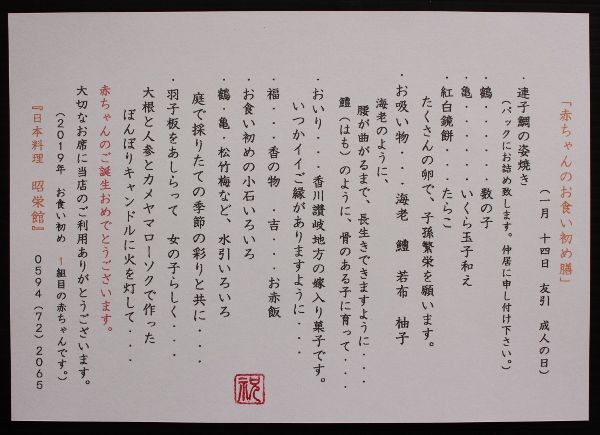 「赤ちゃんのお食い初め膳」
(一月 十四日 友引 成人の日)
・連子鯛の姿焼き
(パックにお詰め致します。仲居に申し付け下さい。)
・鶴・・・・・・数の子
・亀・・・・・・いくら玉子和え
・紅白鏡餅・・・・たらこ
たくさんの卵で、子孫繁栄を願います。
・お吸い物・・・・海老 鱧 若布 柚子
海老のように、
腰が曲がるまで、長生きできますように・・・・
鱧(はも)のように、骨のある子に育って・・・・
・おいり・・・・香川讃岐地方の嫁入り菓子です。
いつかイイご縁がありますように・・・・
・福・・・香の物 吉・・・お赤飯
・お食い初めの小石いろいろ
・鶴・亀・松竹梅など、水引いろいろ
庭で採りたての季節の彩りと共に・・・・
・羽子板をあしらって 女の子らしく・・・・
大根と人参とカメヤマローソクで作った
ぼんぼりキャンドルに火を灯して・・・・
赤ちゃんのご誕生おめでとうございます。
大切なお席に当店のご利用ありがとうございます。
(2019年 お食い初め 1組目の赤ちゃんです。)
『日本料理 昭栄館』 0594(72)2065
祝